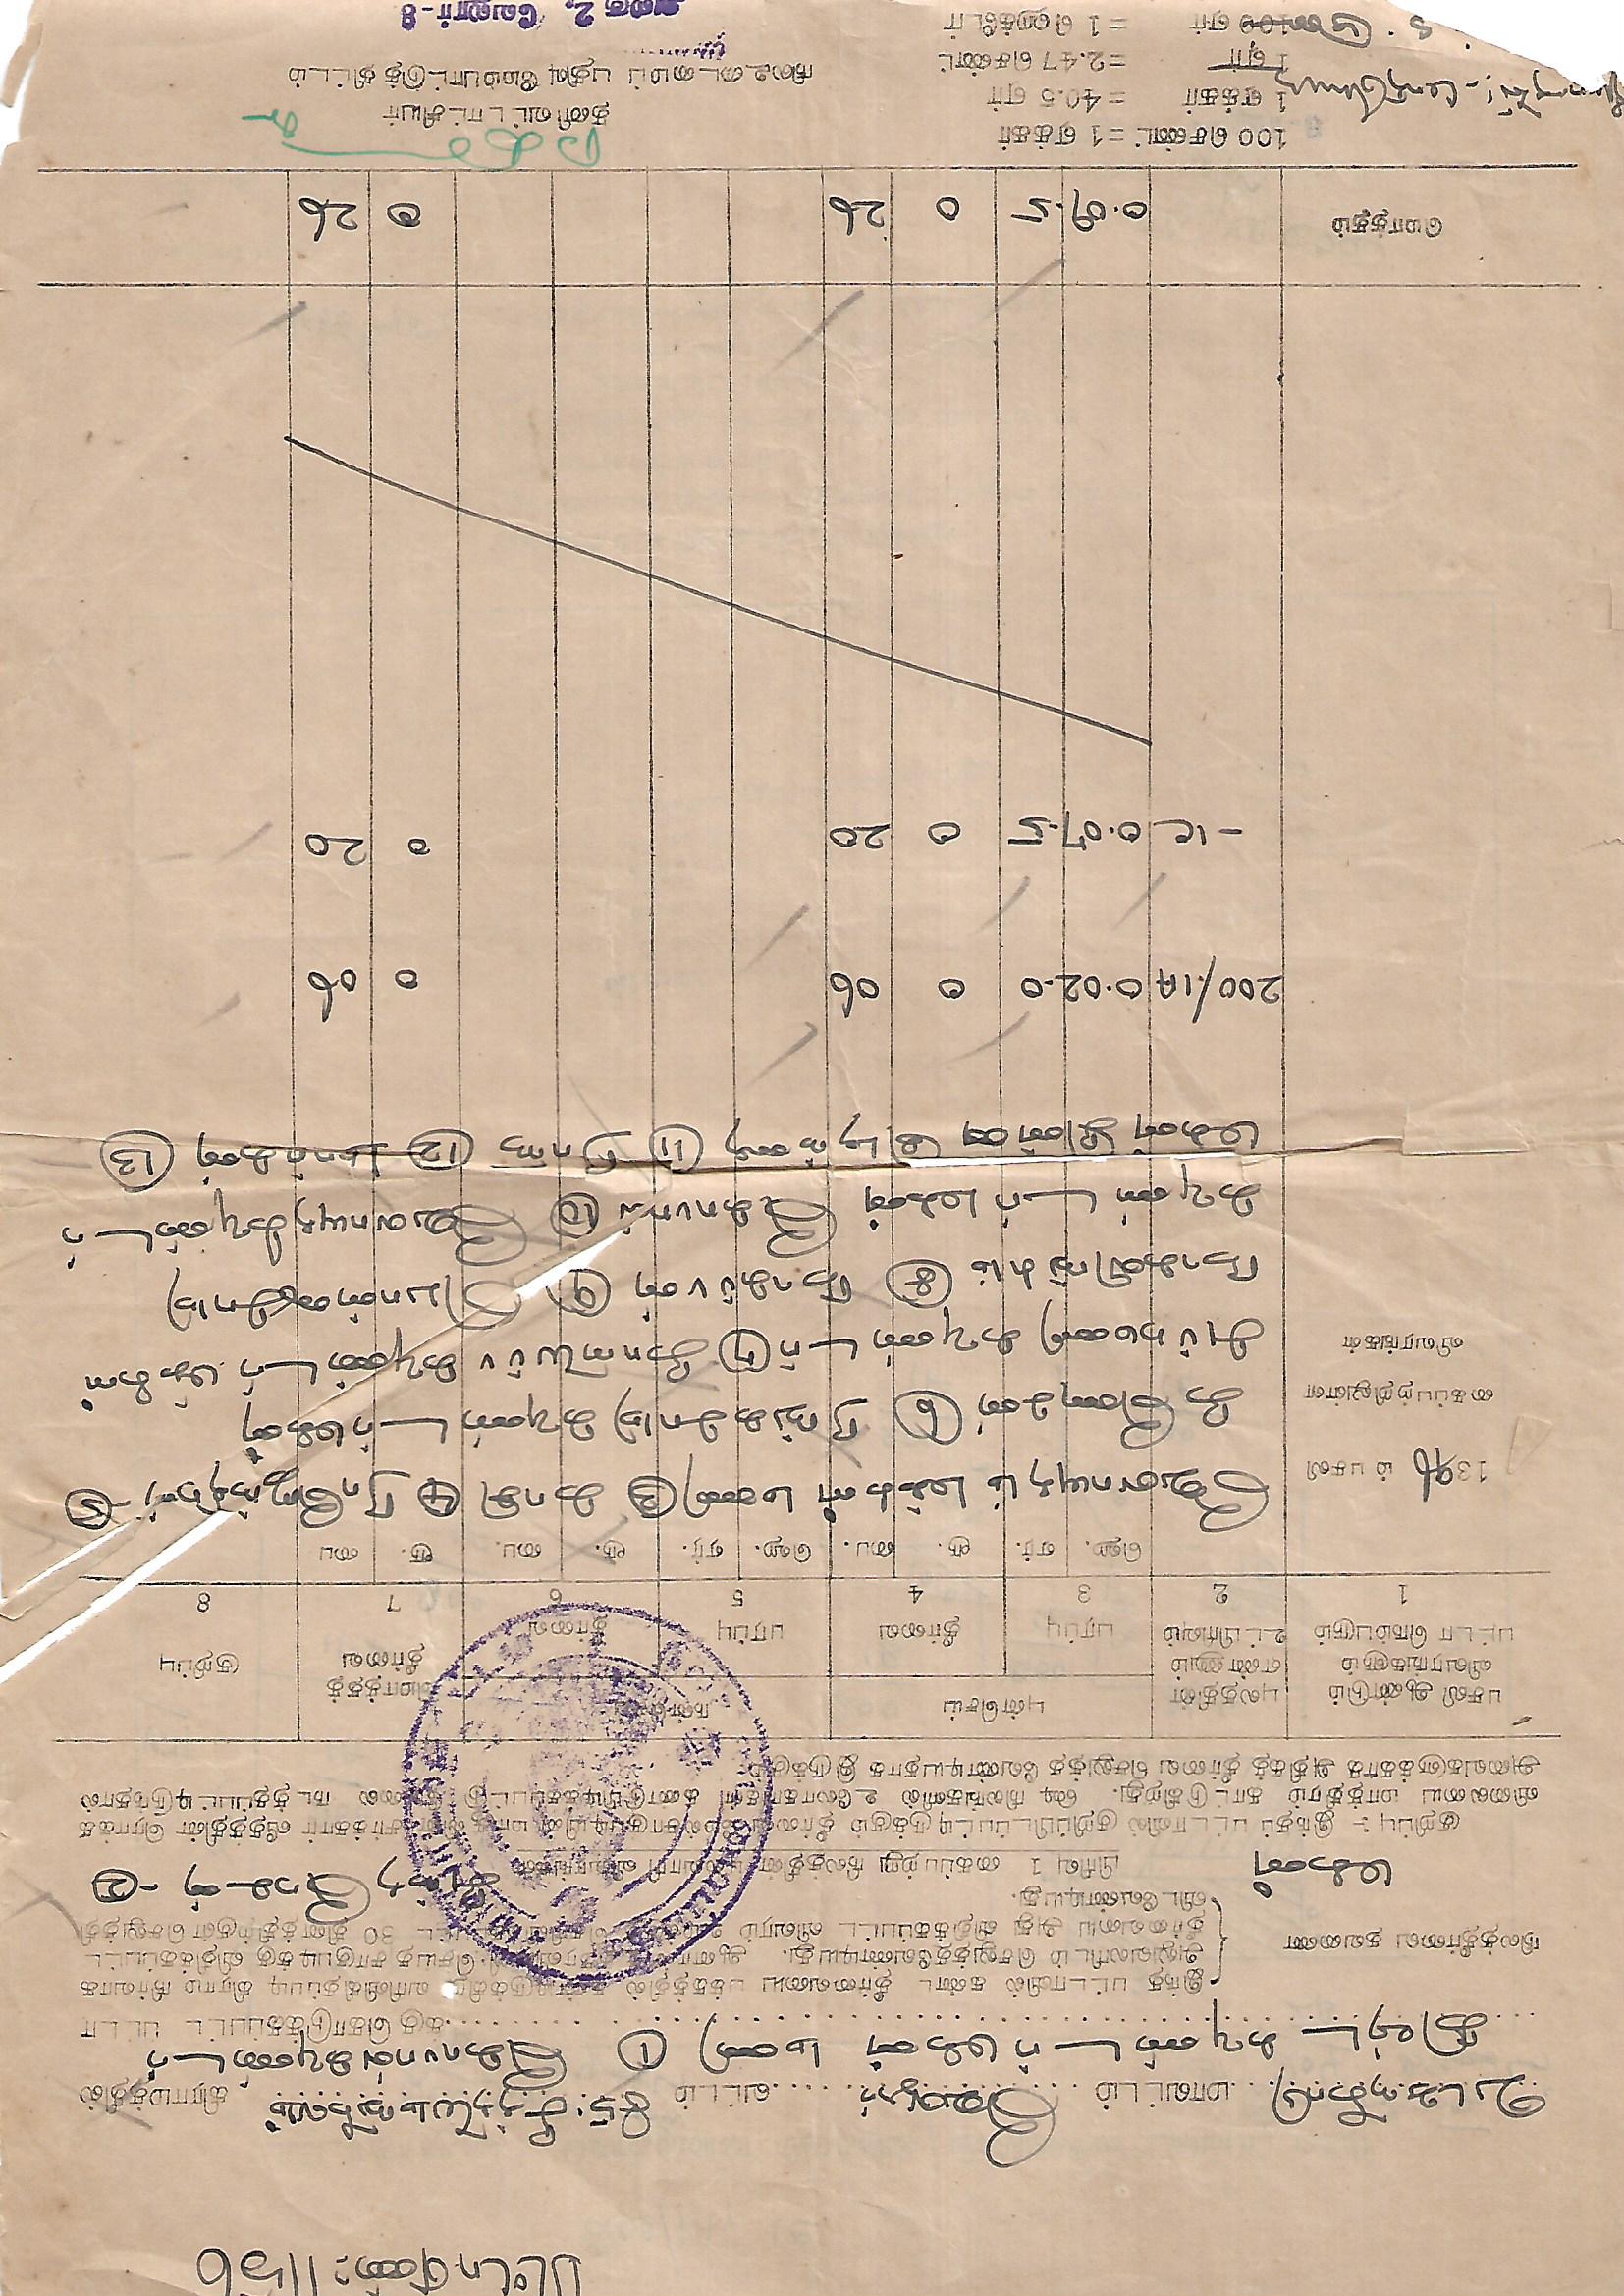 பட்டா எண்: 1156
வடஆற்காடு மாவட்டம் வேலூர் வட்டம் 85. சித்தியமங்கலம் கிராமத்தில்
கிஷ்ட கவுண்டர் மகன் மணி ① கோபால்கவுண்டர்
க்கு கொடுக்கப்பட்ட பட்டா
இந்த பட்டாவில் கண்ட தீர்வையை பக்கத்தில் கண்டிருக்கிற வரிவிகிதப்படி கிராம நிர்வாக
நிலத்தீர்வை தவணை அலுவலரிடம் செலுத்தவேண்டியது. செய்த சாகுபடிக்கு விதிக்கப்பட்ட
தீர்வையை அது விதிக்கப்பட்ட விவரம் 30 தினத்திற்குள் செலுத்தி
விடவேண்டியது.
மகன் பிரிவு 1 கைப்பற்று நிலத்தின் விவரங்கள் -②
குறிப்பு :- இந்தப் பட்டாவில் குறிப்பிடப்பட்டிருக்கும் தீர்வை மேல்சாகுபடியின் சர்க்கார் வீதத்தின் ரொக்க
விலையை மாத்திரம் காட்டுகிறது. ஷை நிலங்களில் உலோகங்கள் கண்டுபிடிக்கப்பட்டு வேலை நடத்தப்பட்டிருந்தால்
அவைகளுக்காக அதிகத் தீர்வை செலுத்த வேண்டியதாக இருக்கும்.
பசலி ஆண்டும் விவரங்களும் பட்டா நெம்பரும் புலத்தின் எண்ணும் உட்பிரிவும் புன்செய் நன்செய் மொத்தத் தீர்வை குறிப்பு
பரப்பு தீர்வை பரப்பு தீர்வை
1 2 3 4 5 6 7 8
ஹெ. ஏர். ரூ. பை. ஹெ. ஏர். ரூ. பை. ரூ. பை
1396 ம் பசலி வேலாயுதம் மக்கள் மணி ③ காசி ④ ராஜேந்திரன் -⑤
கைப்பற்றிலுள்ள கணேசன் ⑥ ரங்கசாமி கவுண்டர் மகன்
விவரங்கள் சுப்ரமணி கவுண்டர் ⑦ காளியப்ப கவுண்டர் மக்கள்
நாகலிங்கம் ⑧ நாகப்பன் ⑨ பொன்னுசாமி
கவுண்டர் மகன் கோபால் ⑩ வேலாயுதகவுண்டர்
மகன் ⑪ ⑫ ⑬
200/1A 0.02.0 0 06 0 06
-1C 0.07.5 0 20 0 20
மொத்தம் 0.09.5 0 26 0 26
100 செண்ட் = 1 ஏக்கர்
1 ஏக்கர் = 40.5 ஏர்
1 ஏர் = 2.47 செண்ட்
100 ஏர் = 1 ஹெக்டேர்
தனி வட்டாட்சியர்
நிலஉடைமைப் பதிவு மேம்பாட்டுத் திட்டம்
அலகு 2, வேலூர்-8